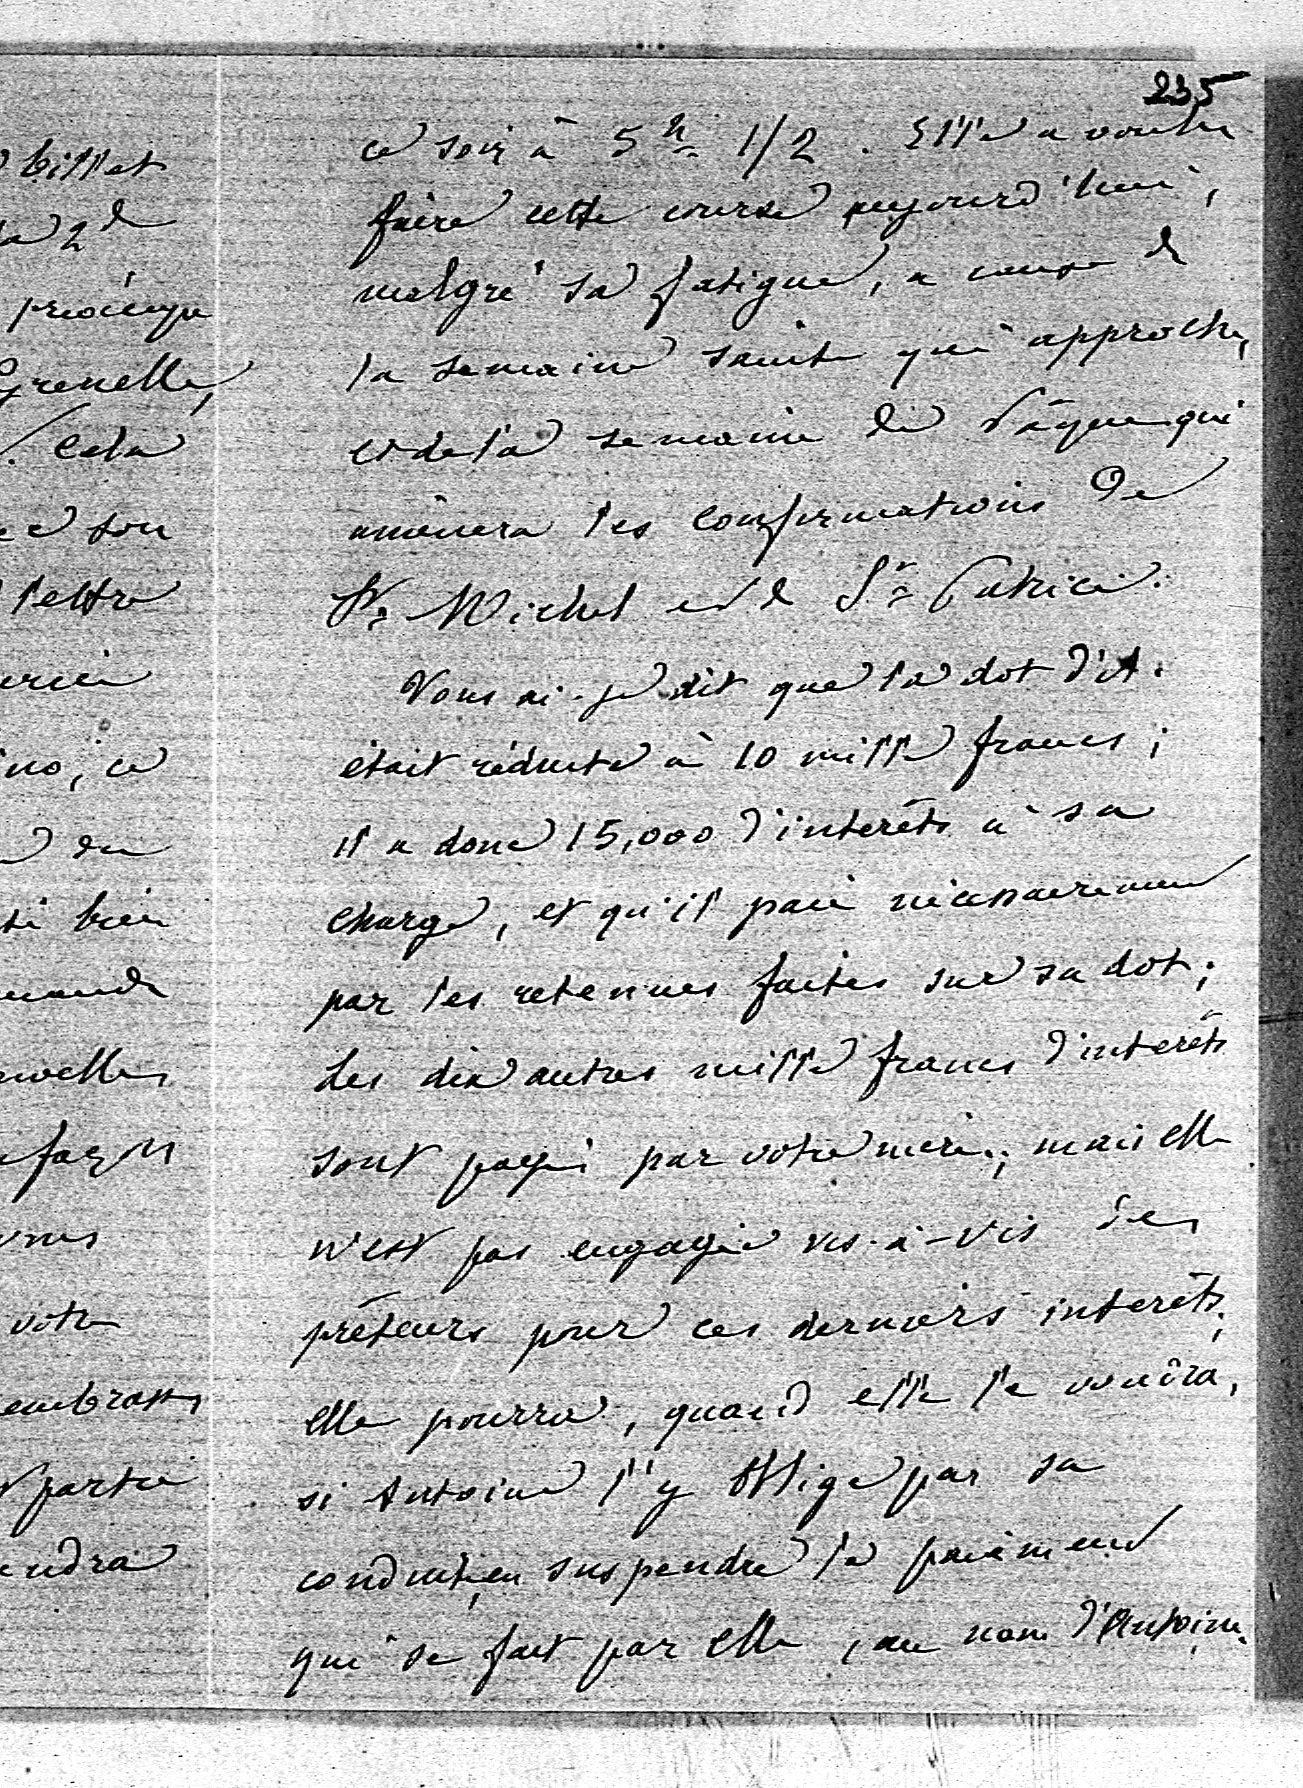 235
billet
la 2de
préoccupe
Grenelle,
. Cela
son
lettre
ce
du
bien
façon
vous
votre
embrasse
partie
ce soir à 5h 1/2. Elle a voulu
faire cette course aujourd'hui,
malgré sa fatigue, a cause de
la semaine sainte qui approche,
et de la semaine de Pâques qui
amènera les confirmations de
St Michel et de St Patrice.
Vous ai-je dit que la dot d'A.
était réduite à 10 mille francs;
il a donc 15,000 d'interêts à sa
charge, et qu'il paie nécessairement
par les retenues faites sur sa dot;
Les dix autres mille francs d'interêts
sont payés par votre mère; mais elle
n'est pas engagée vis-à-vis des
prêteurs pour ces derniers interêts;
elle pourra, quand elle le voudra,
si Antoine l'y oblige par sa
conduite, en suspendre le paiement
qui se fait par elle, au nom d'Antoine.